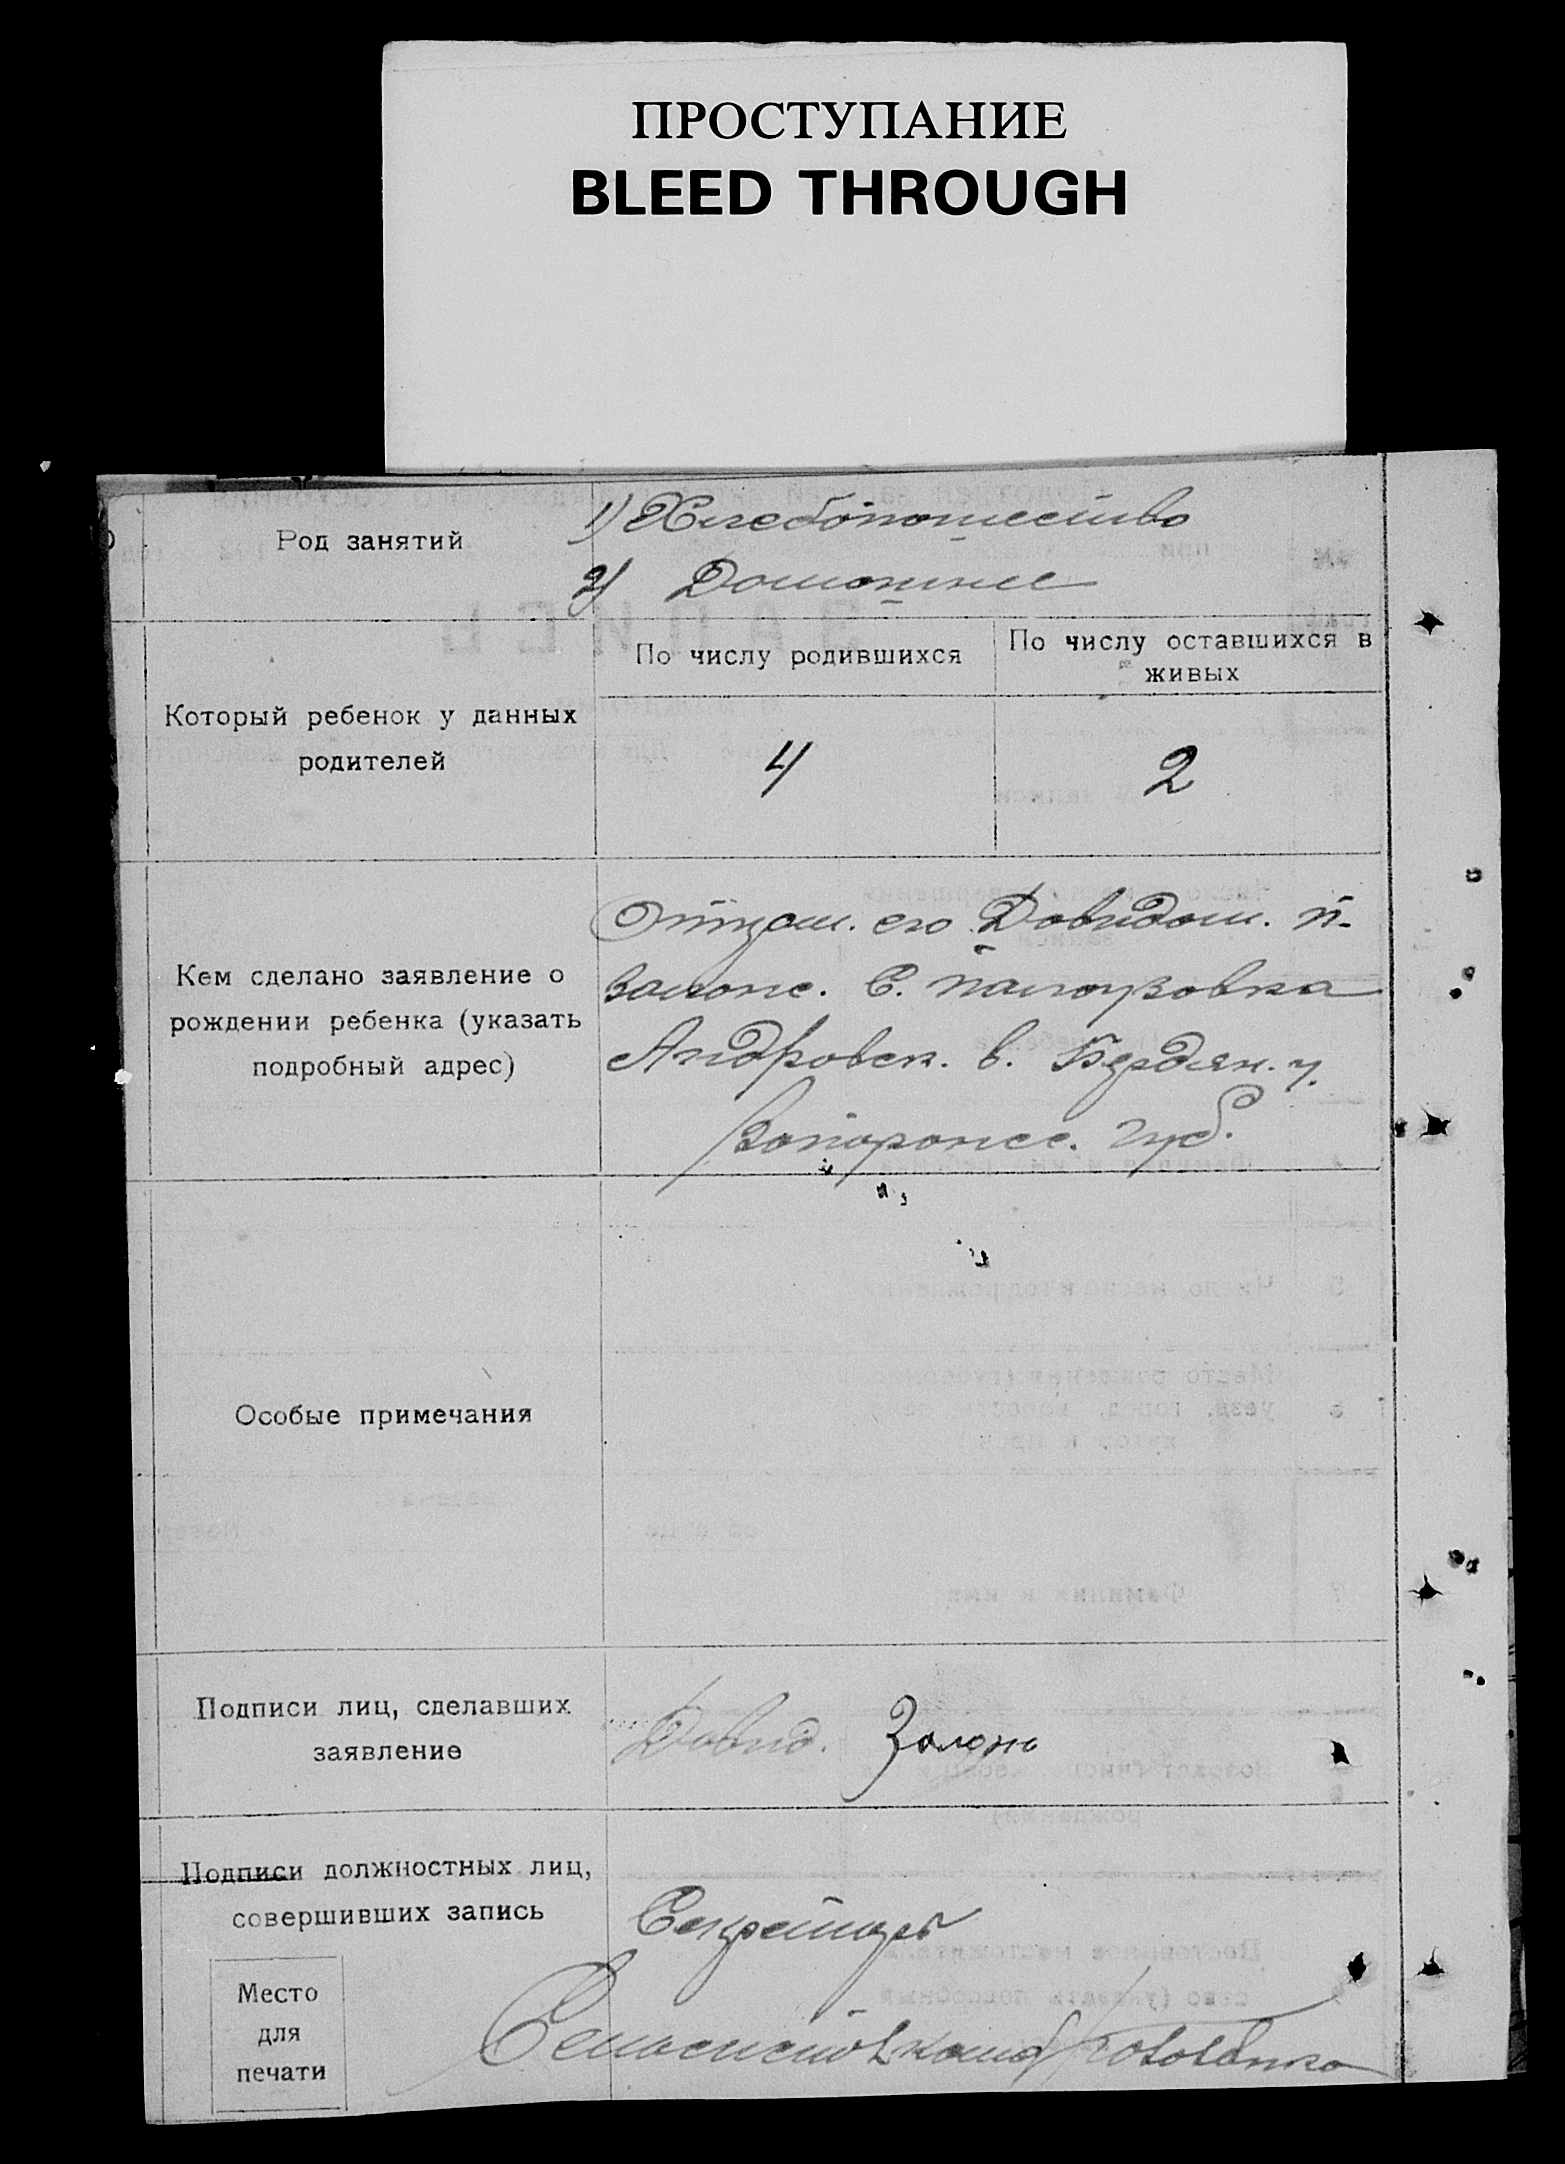 ПРОСТУПАНИЕ
BLEED THROUGH
Род занятий
1) Хлебопашество
2) Домашнее
Который ребенок у данных
родителей
По числу родившихся
По числу оставшихся в
живых
4
2
Кем сделано заявление о
рождении ребенка (указать
подробный адрес)
Отцом его Довидом
С.
Андровск. в. Бердян. у.
Запорожс. губ.
Особые примечания
Подписи лиц, сделавших
заявление
Довид
Подписи должностных лиц,
совершивших запись
Секретарь
Место
для
печати